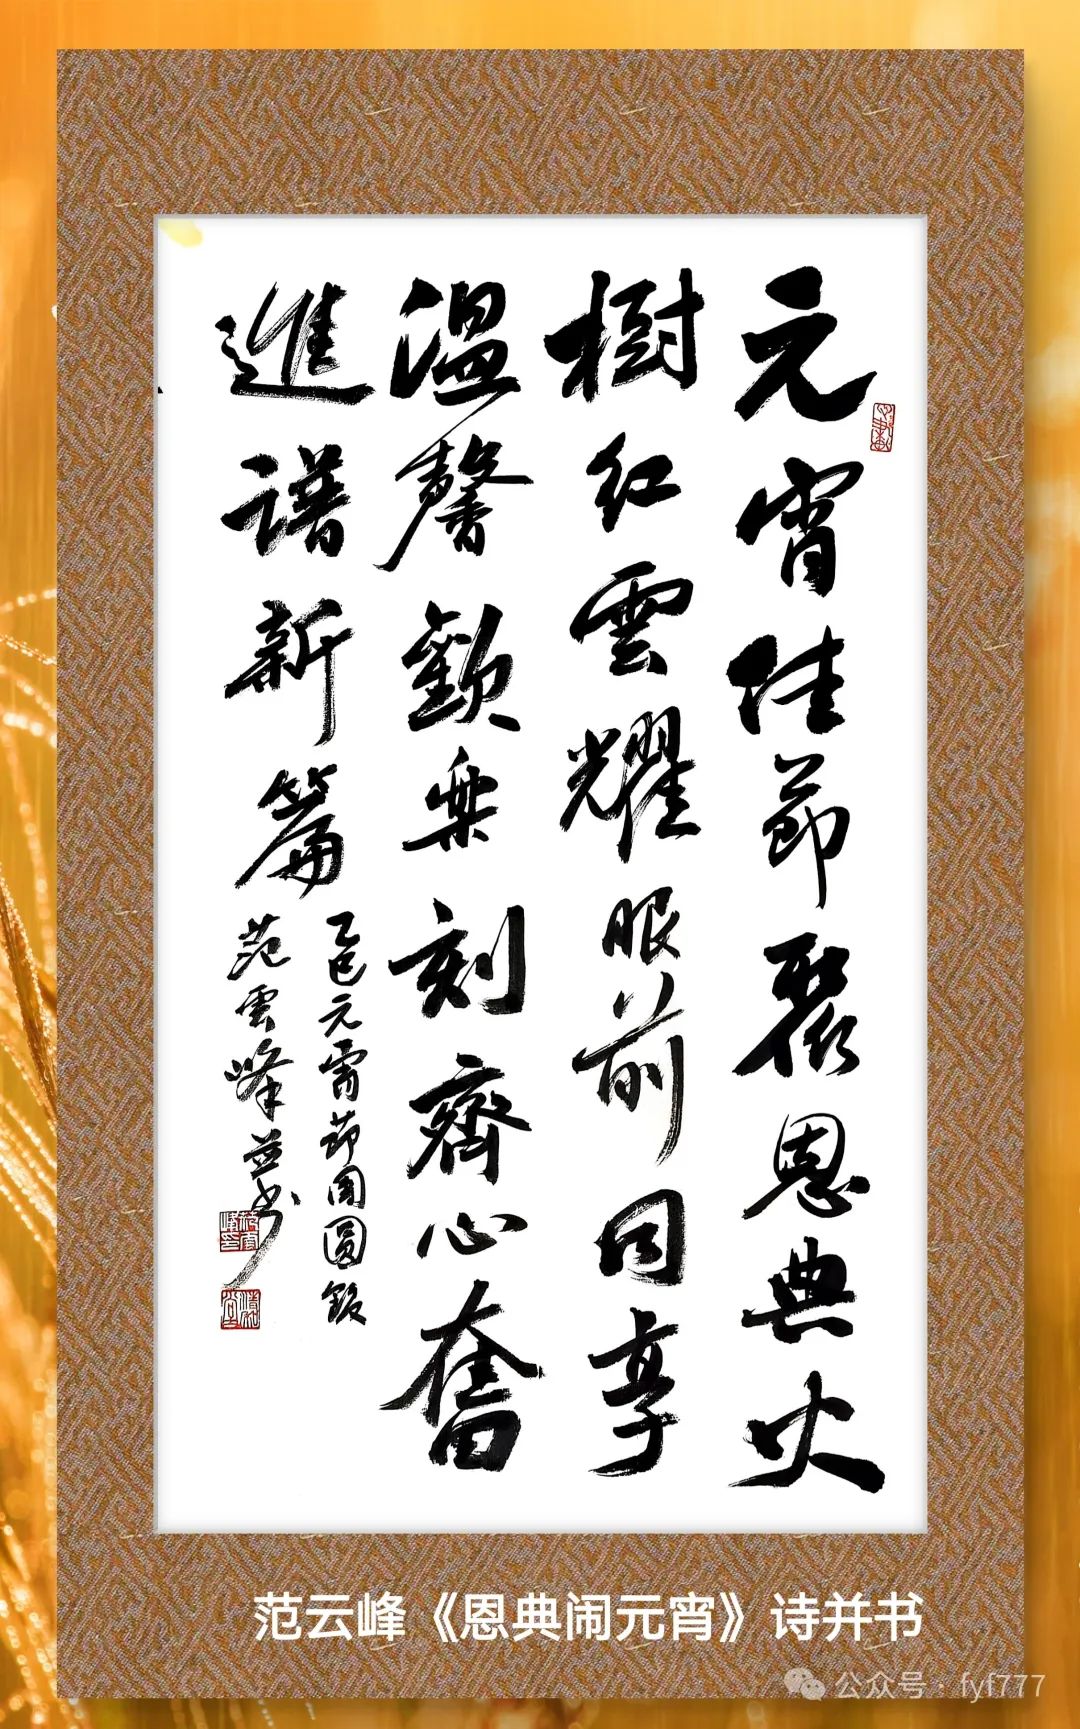 元宵佳節聚恩典火
樹紅雲耀眼前同享
溫馨歡樂刻齊心奮
進譜新篇
乙巳元宵節團圓飯
范雲峰并书
范云峰《恩典闹元宵》诗并书
公众号·fyf777